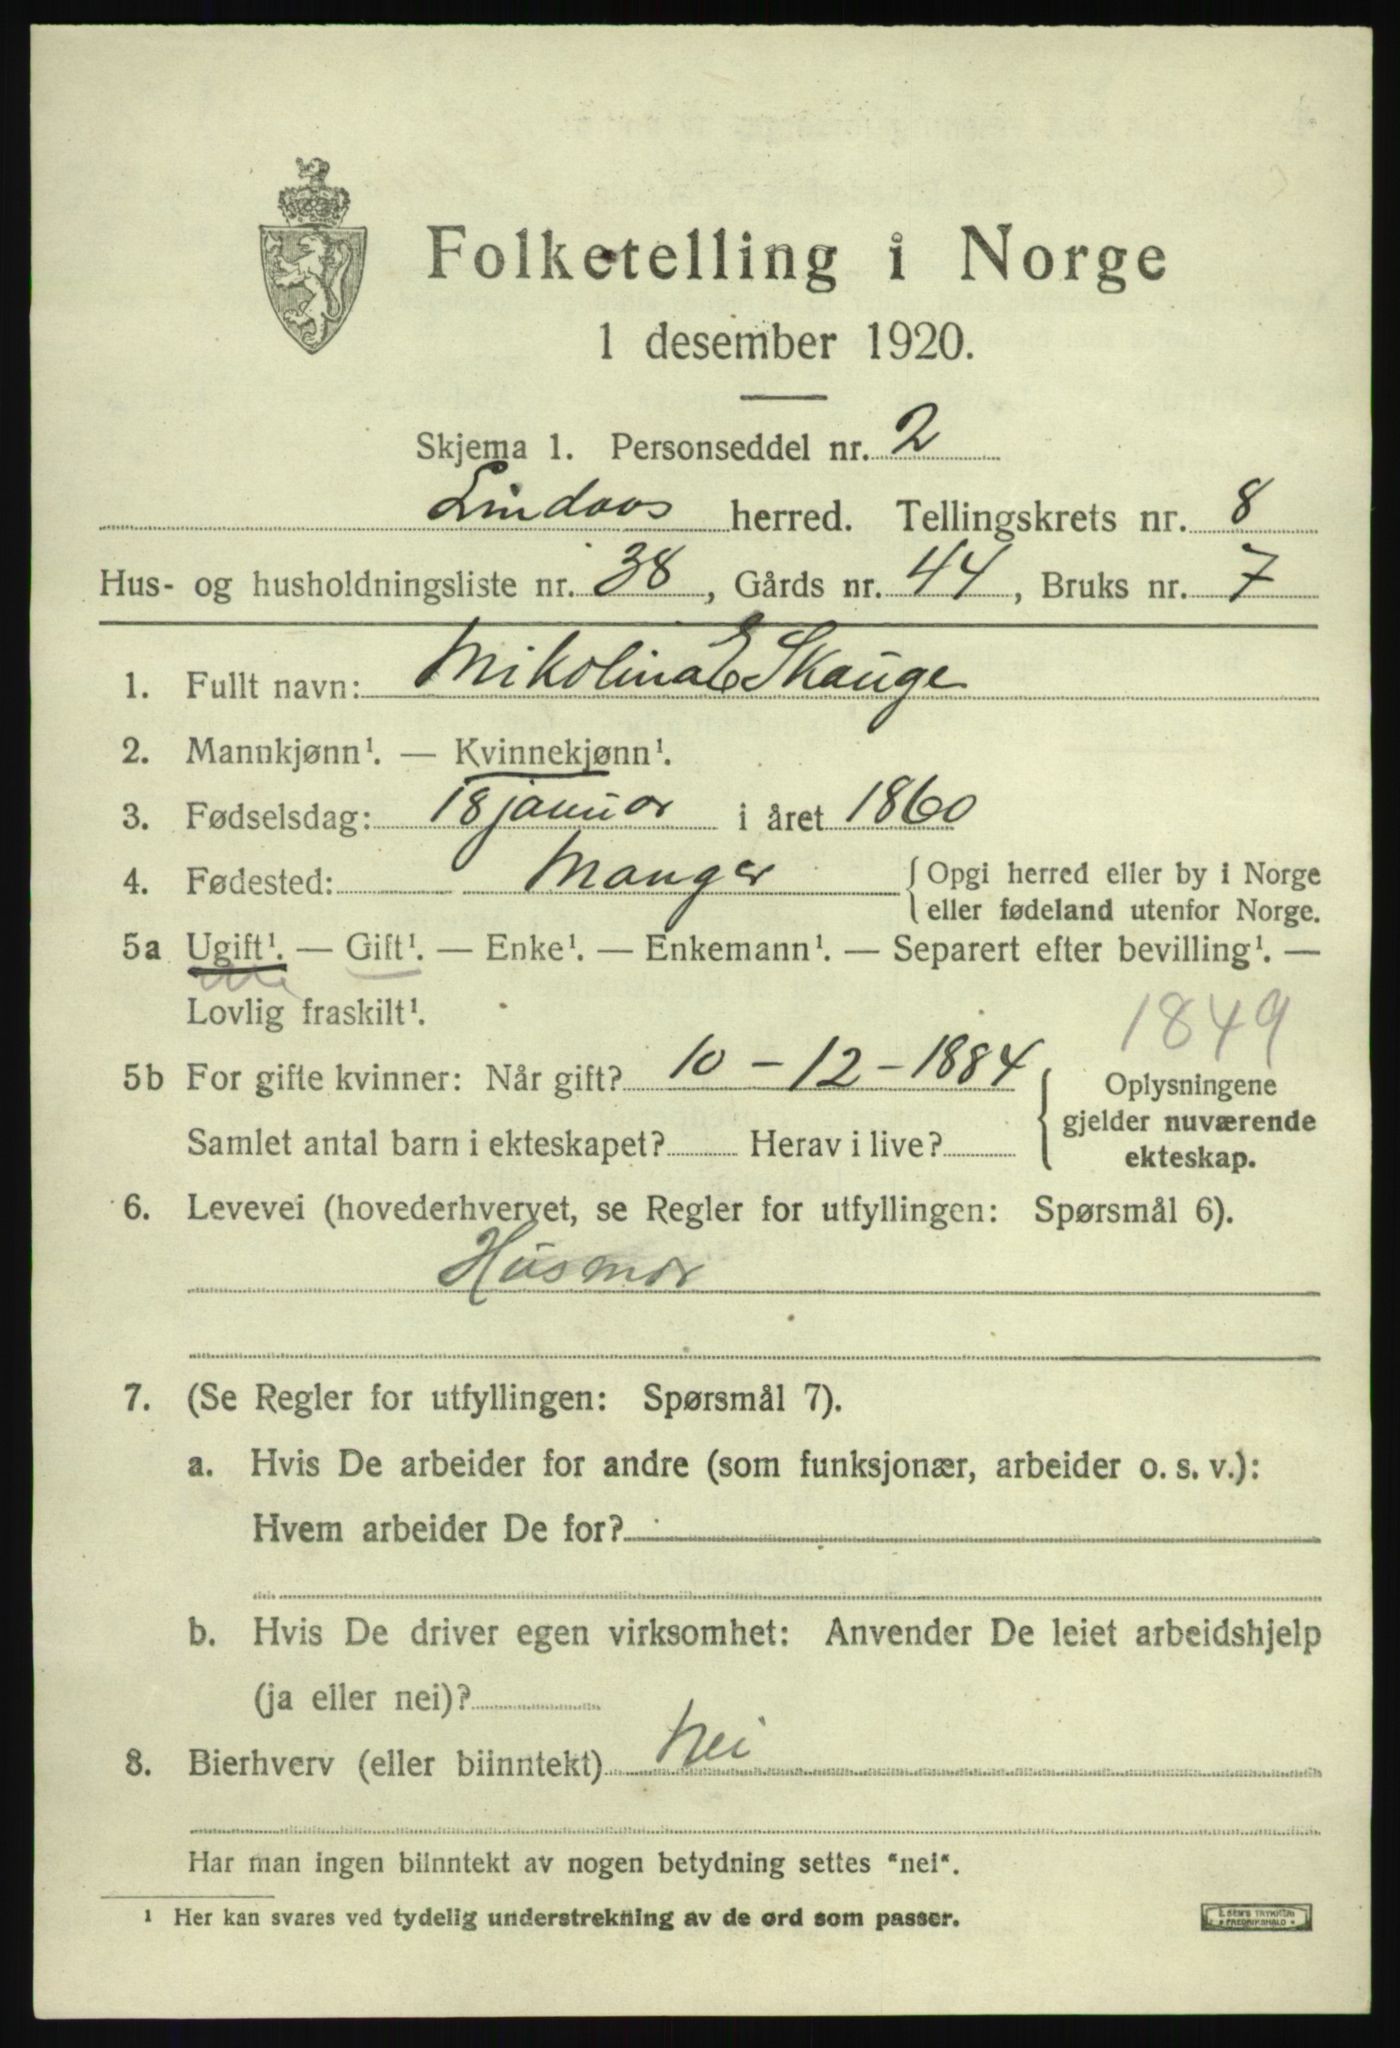 Folketelling i Norge
1 desember 1920.
Skjema 1. Personseddel nr. 2
Lindaas herred. Tellingskrets nr. 8
Hus- og husholdningsliste nr. 38, Gårds nr. 44, Bruks nr. 7
1. Fullt navn: Mikolina E Skauge
2. Mannkjønn¹. — Kvinnekjønn¹.
3. Fødselsdag: 18 januar i året 1860
4. Fødested: Manger { Opgi herred eller by i Norge
eller fødeland utenfor Norge.
5a Ugift¹. — Gift¹. — Enke¹. — Enkemann¹. — Separert efter bevilling¹. —
Lovlig fraskilt¹.
1849
5b For gifte kvinner: Når gift? 10 – 12 – 1884
Samlet antal barn i ekteskapet? Herav i live?
{ Oplysningene
gjelder nuværende
ekteskap.
6. Levevei (hovederhvervet, se Regler for utfyllingen: Spørsmål 6).
Husmor
7. (Se Regler for utfyllingen: Spørsmål 7).
a. Hvis De arbeider for andre (som funksjonær, arbeider o. s. v.):
Hvem arbeider De for?
b. Hvis De driver egen virksomhet: Anvender De leiet arbeidshjelp
(ja eller nei)?
8. Bierhverv (eller biinntekt) Nei
Har man ingen biinntekt av nogen betydning settes "nei".
¹ Her kan svares ved tydelig understrekning av de ord som passer.